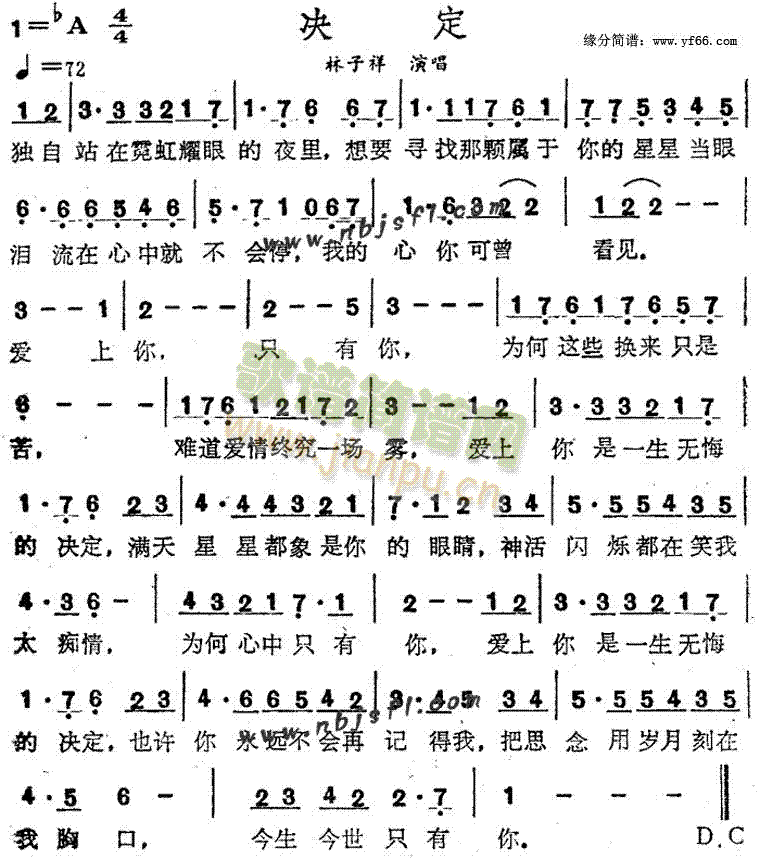 1=♭A 4/4 决定 缘分简谱：www.yf66.com
♩=72 林子祥 演唱
1 2 | 3·3 3 2 1 7 | 1·7 6 6 7 | 1·1 1 7 6 1 | 7 7 5 3 4 5 |
独自站在霓虹耀眼的夜里，想要寻找那颗属于你的星星当眼
6·6 6 5 4 6 | 5·7 1 0 6 7 | 1·6 3 2 2 | 1 2 2 - - |
泪流在心中就不会停，我的心你可曾看见。
3 - - 1 | 2 - - - | 2 - - 5 | 3 - - - | 1 7 6 1 7 6 5 7 |
爱上你，只有你，为何这些换来只是
6 - - - | 1 7 6 1 2 1 7 2 | 3 - - 1 2 | 3·3 3 2 1 7 |
苦，难道爱情终究一场雾，爱上你是一生无悔
1·7 6 2 3 | 4·4 4 3 2 1 | 7·1 2 3 4 | 5·5 5 4 3 5 |
的决定，满天星星都象是你的眼睛，神活闪烁都在笑我
4·3 6 - | 4 3 2 1 7·1 | 2 - - 1 2 | 3·3 3 2 1 7 |
太痴情，为何心中只有你，爱上你是一生无悔
1·7 6 2 3 | 4·6 6 5 4 2 | 3·4 5 3 4 | 5·5 5 4 3 5 |
的决定，也许你永远不会再记得我，把思念用岁月刻在
4·5 6 - | 2 3 4 2 2·7 | 1 - - - ‖
我胸口，今生今世只有你。 D.C
www.nbjsfl.com
歌谱简谱网
www.jianpu.cn
www.nbjsfl.com